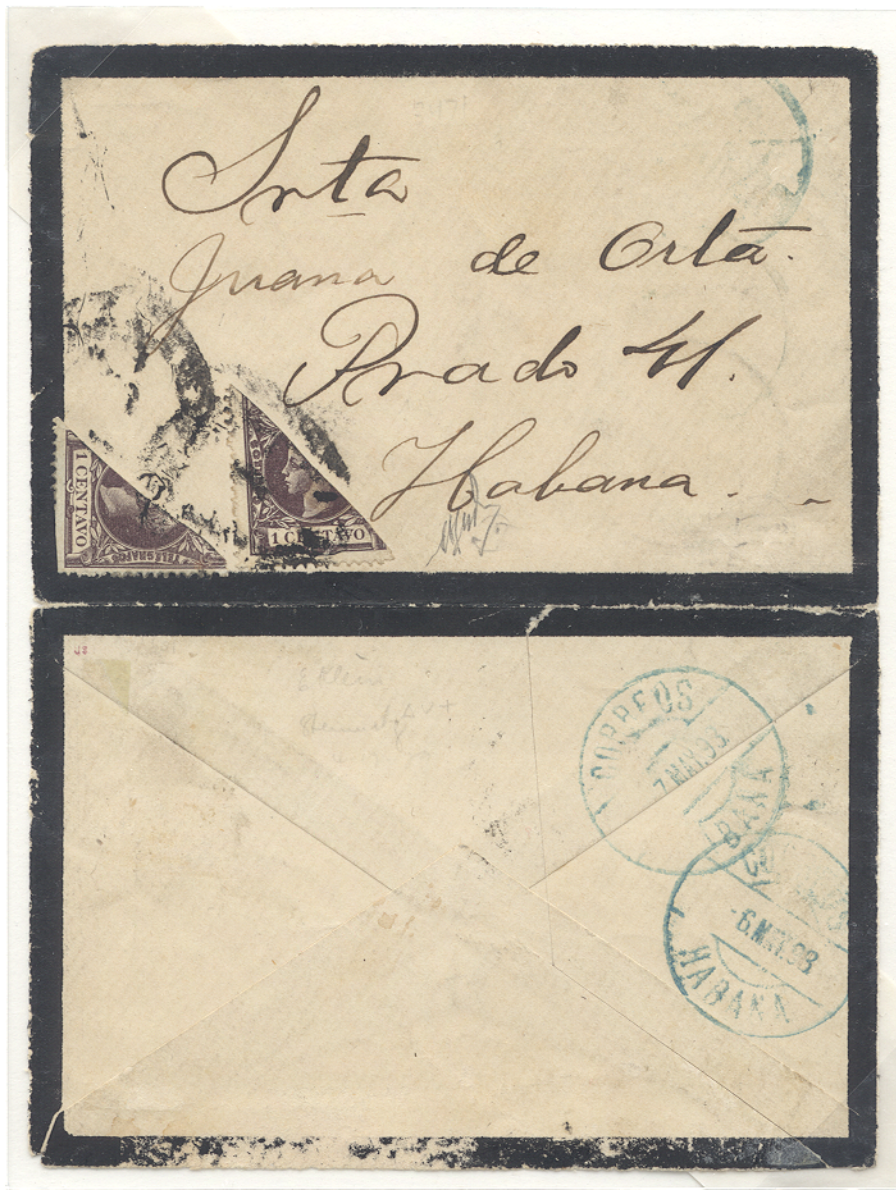 Srta
Juana de Orta.
Prado 41.
Habana.
1 CENTAVO
TELEGRAFOS
1 CENTAVO
CORREOS
7 MAY.98
HABANA
-6.MAY.98
HABANA